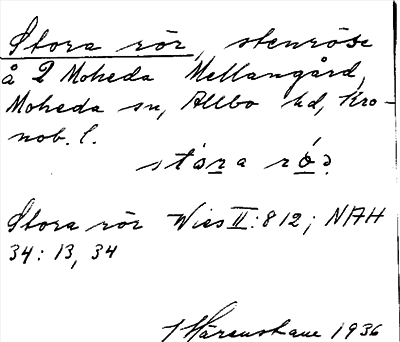 Stora rör, stenröse
å 2 Moheda Mellangård,
Moheda sn, Allbo hd, Kro-
nob. l.
stara ró
Stora rör Wies II:812; NAH
34: 13, 34
1936